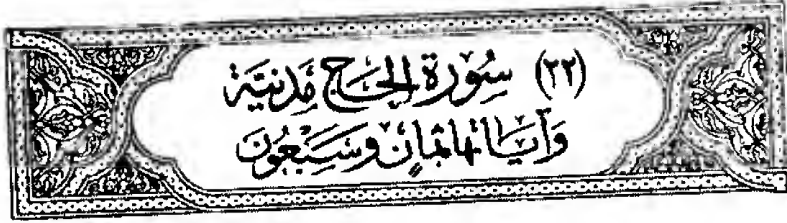 (٢٢) سُورَة الحَجّ مَدَنِيَّة
وَآيَاتُهَا ثَمَانٍ وَسَبْعُون